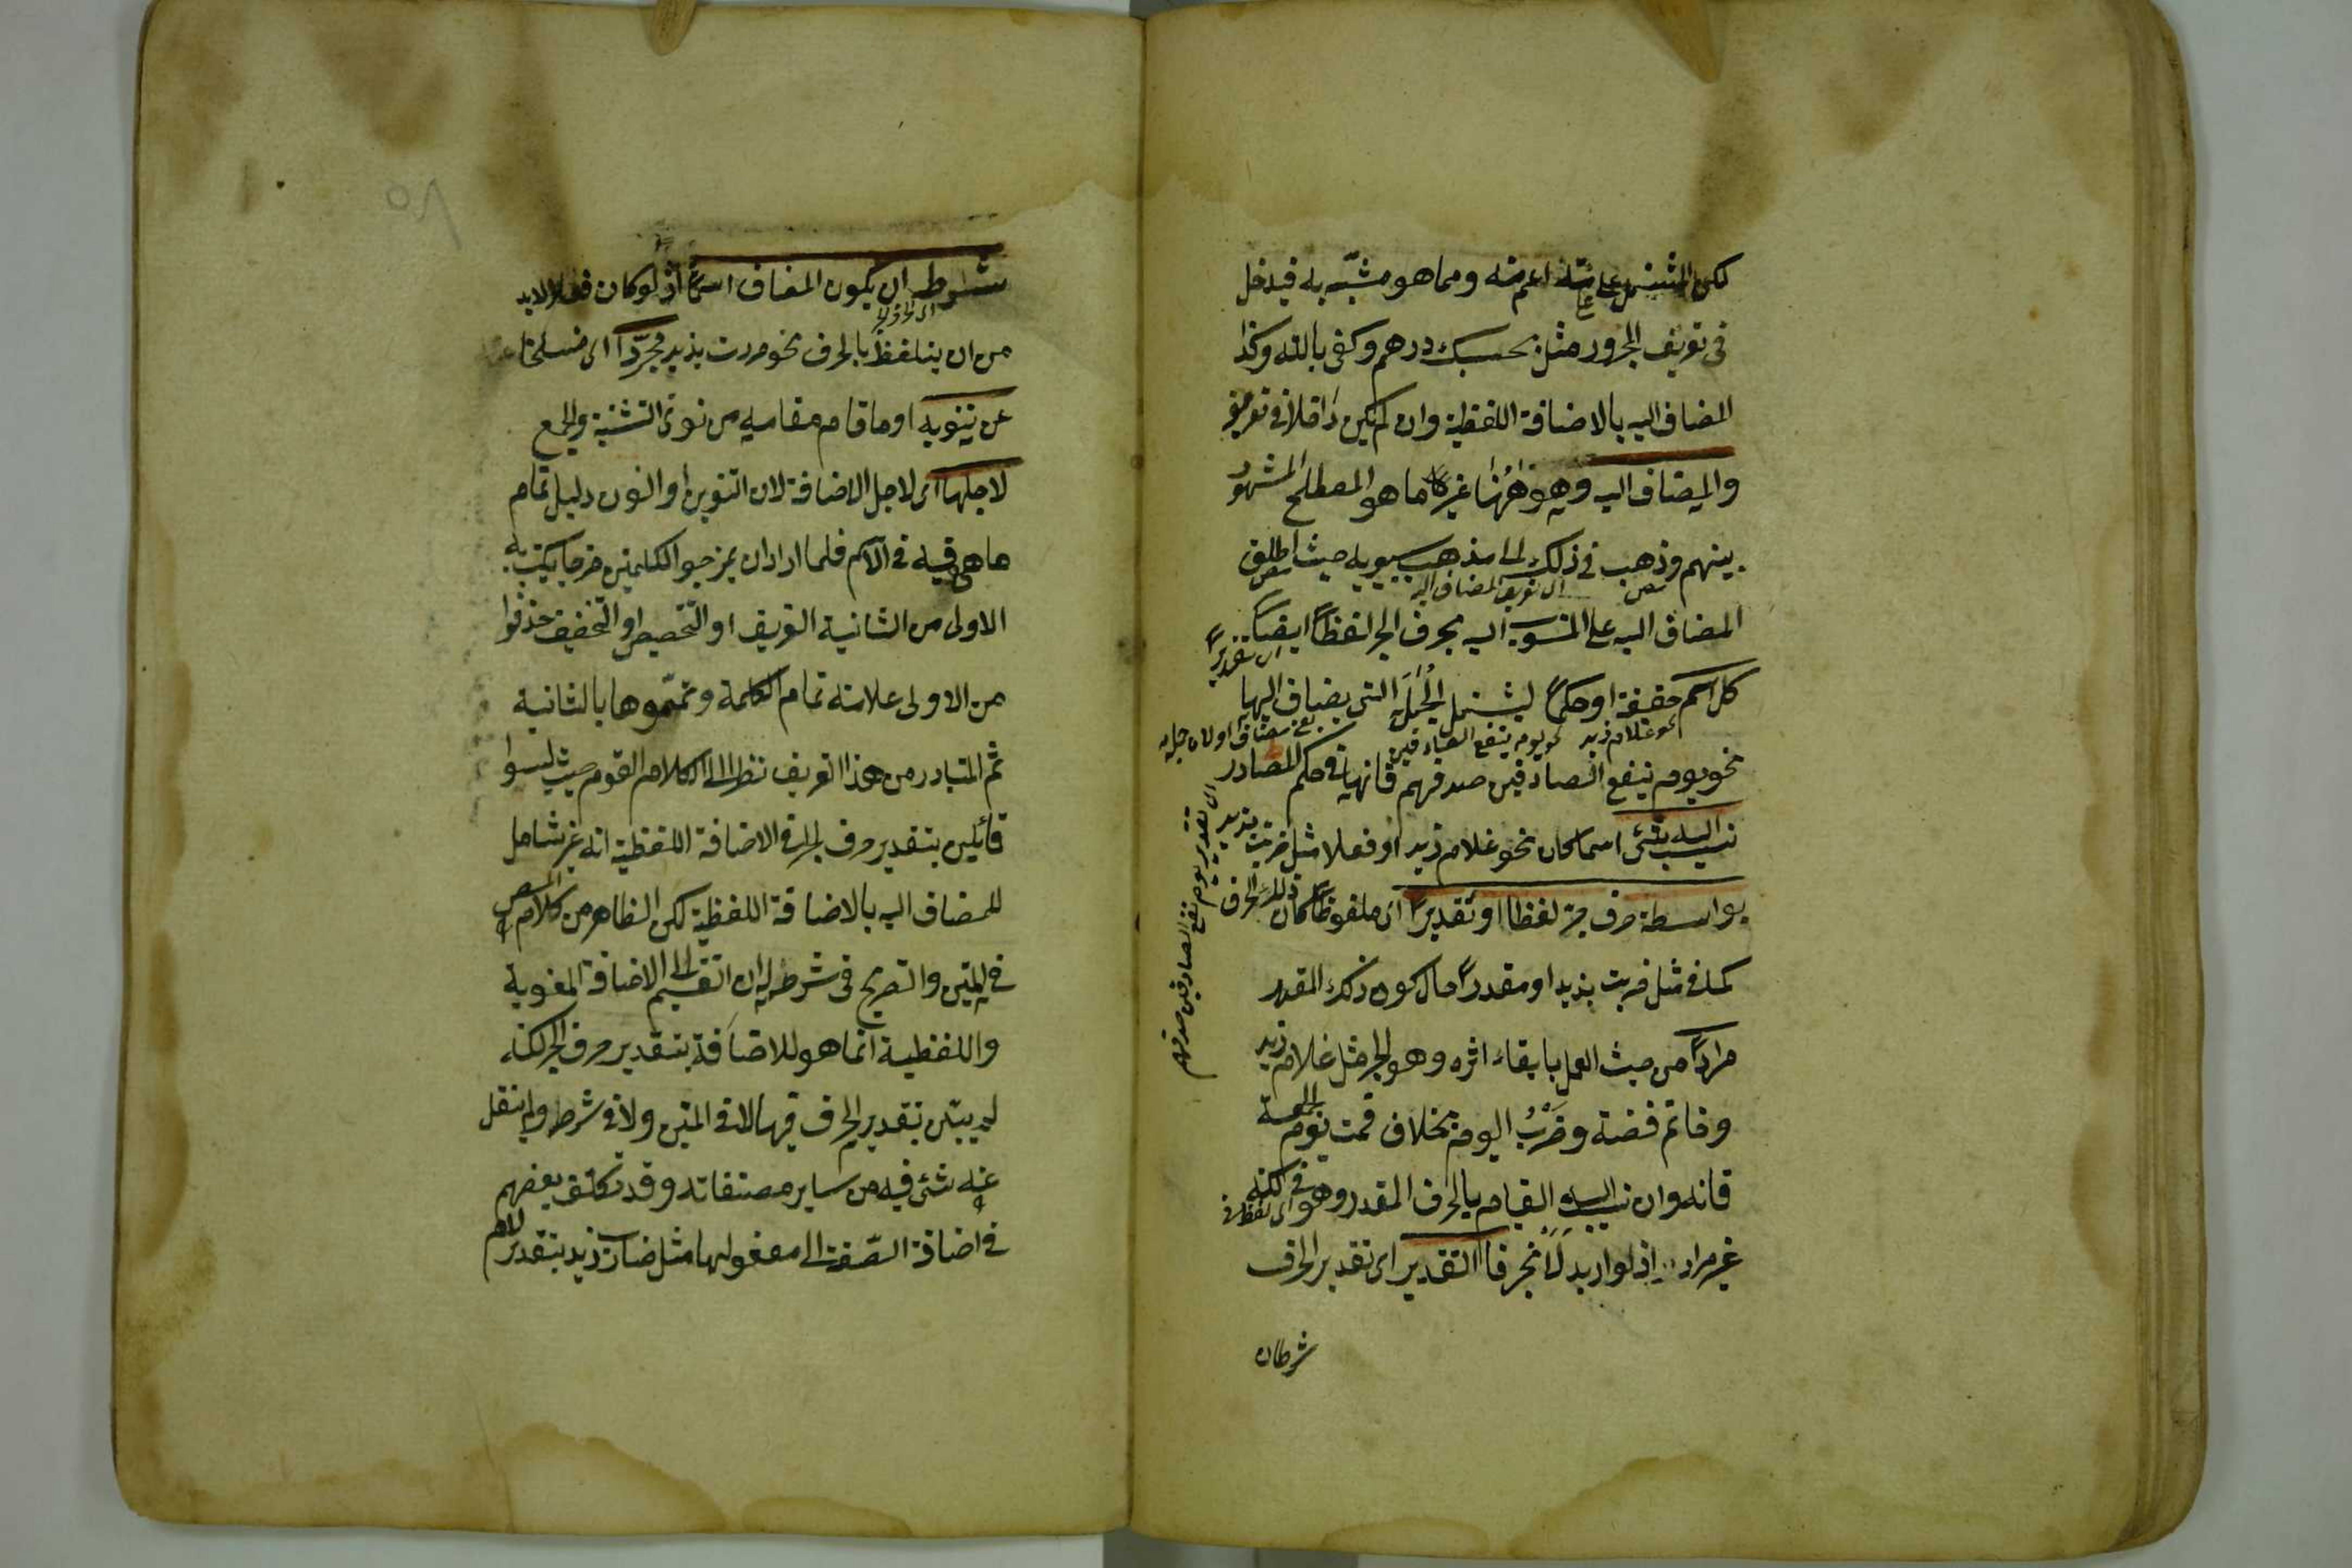 لكن المشتمل على علامته اعم منه ومما هو مشبّه به فيدخل
فى تعريف المجرور مثل بحسبك درهم وكفى بالله وكذا
المضاف اليه بالاضافة اللفظية وان لم يكن داخلا فى تعريفه
والمضاف اليه وهو ههنا غير ما هو المصطلح المشهور
بينهم وذهب فى ذلك الى مذهب سيبويه حيث اطلق
اى تعريف المضاف اليه
المضاف اليه على المنسوب اليه بحرف الجر لفظاً ايضاً
اى تقديرا
كل اسم حقيقة او حكماً ليشتمل الجُمَل التى يضاف اليها
نحو غلام زيد نحو يوم ينفع الصادقين
نحو يوم ينفع الصادقين صدقهم فانها فى حكم المصادر
نسب اليه شئ اسما كان نحو غلام زيد او فعلا مثل مررت بزيد
بواسطة حرف جر لفظا او تقديراً اى ملفوظاً كان ذلك الحرف
كما فى مثل مررت بزيد او مقدراً حال كون ذلك المقدر
مراداً من حيث العمل بابقاء اثره وهو الجر مثل غلام زيد
وخاتم فضة وضَرْبُ اليوم بخلاف قمت يوم الجمعة
فانه وان نسب اليه القيام بالحرف المقدر وهو فى لكنه
غير مراد اذ لو اريد لانجر فا التقدير اى تقدير الحرف
شرطه ان
اى تقدير يوم نفع الصادقين صدقهم
شرطه ان يكون المضاف اسماً اذ لو كان فعلا لابد
من ان يتلفظ بالحرف نحو مررت بزيد مجرّداً اى منسلخا
عن تنوينه او ما قام مقامه من نونى التثنية والجمع
لاجلها اى لاجل الاضافة لان التنوين او النون دليل تمام
ما هى فيه فلما ارادوا ان يمزجوا الكلمتين مزجا يكتسب به
الاولى من الثانية التعريف او التخصيص او التخفيف حذفوا
من الاولى علامة تمام الكلمة وتمّموها بالثانية
ثم المتبادر من هذا التعريف نظرا الى كلام القوم حيث ليسوا
قائلين بتقدير حرف الجر فى الاضافة اللفظية انه غير شامل
للمضاف اليه بالاضافة اللفظية لكن الظاهر من كلام المص
فى المتن والتصريح فى شرحه ان التقسيم الى الاضافة المعنوية
واللفظية انما هو للاضافة بتقدير حرف الجر لكنه
لم يبيّن تقدير الحرف فيها لا فى المتن ولا فى شرحه ولم ينقل
عنه شئ فيه من ساير مصنفاته وقد تكلف بعضهم
فى اضافة الصّفة الى مفعولها مثل ضارب زيد بتقدير اللام